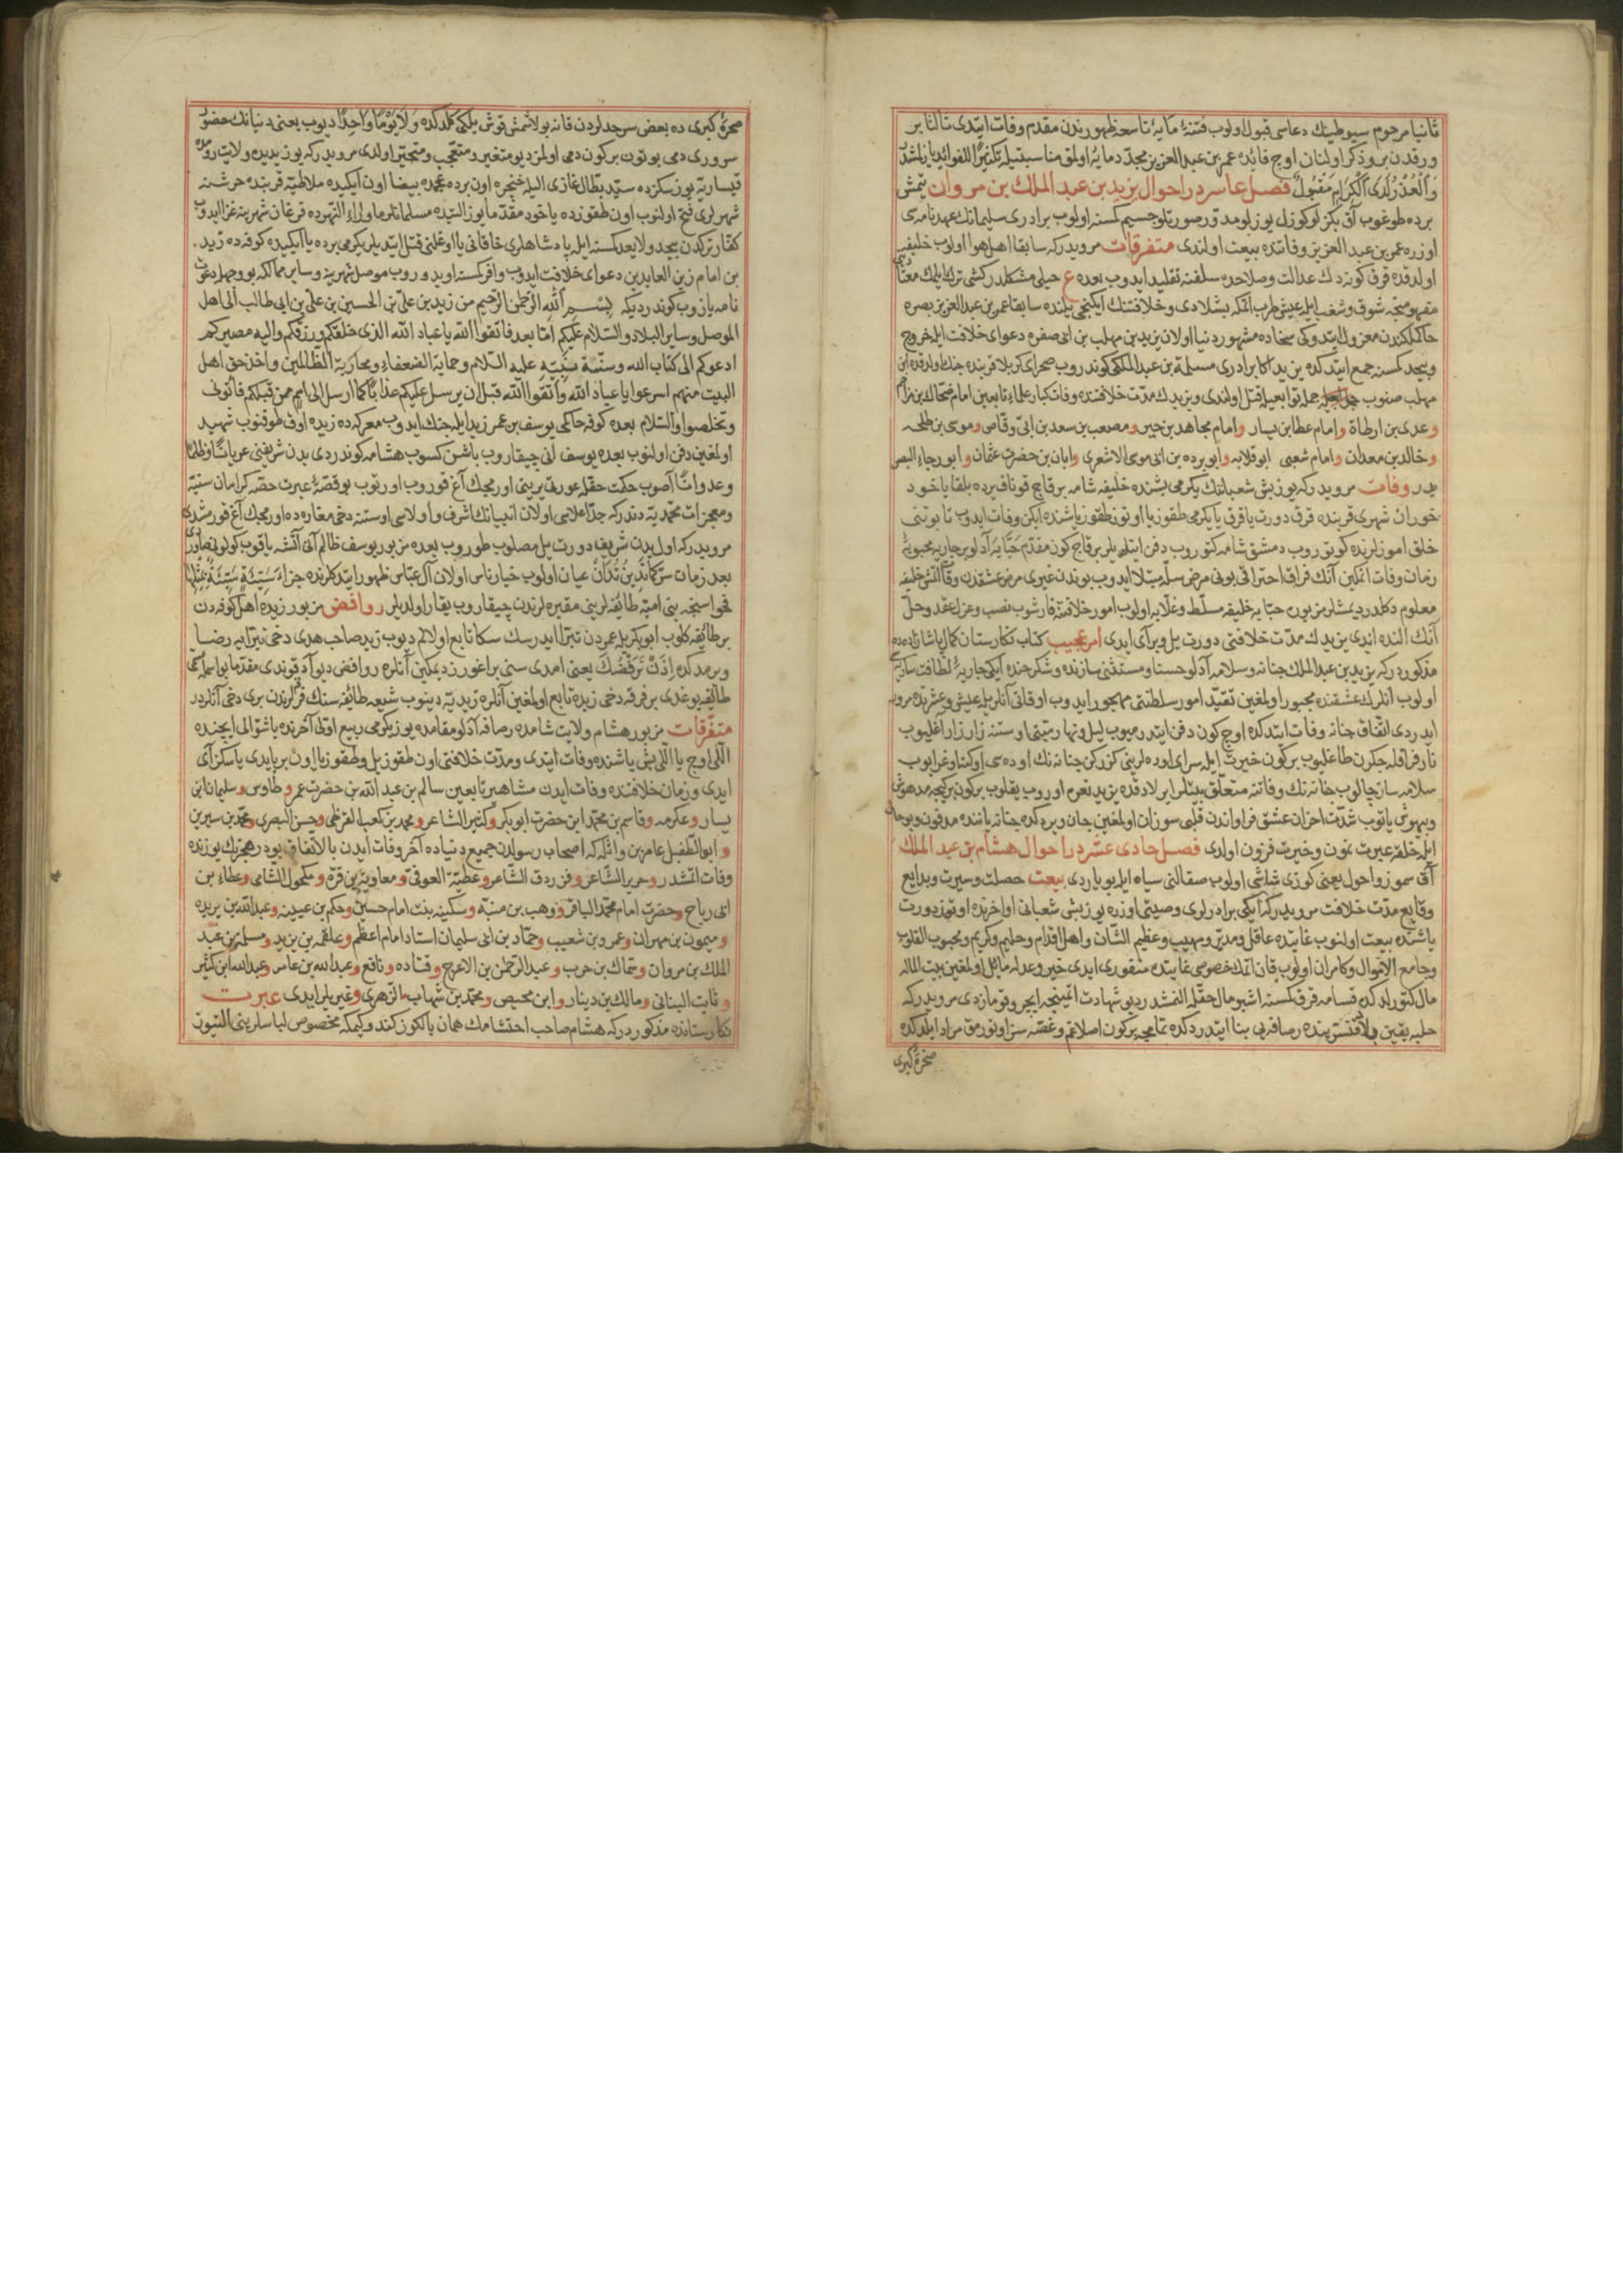 ثانیا مرحوم سیوطینك دعاسی قبول اولوب فتنهٔ مایهٔ تاسعه ظهورندن مقدم وفات ایتدی ثالثا بر
ورقدن بر وذكر اولنان اوج فائده عمر بن عبد العزیز مجدد مایه اولمق مناسبتیله تكثیرا للفوائد یازلمشدر
وَالْعُذْرُ لَدَی الْكِرَامِ مَقْبُولٌ فصل عاشر در احوال یزید بن عبد الملك بن مروان یتمش
برده طوغوب آق بكزلو كوزل یوزلو مدور صورتلو جسیم كمسنه اولوب برادری سلیمانك عهدنامه سی
اوزره عمر بن عبد العزیز وفاتنده بیعت اولندی متفرقات مرویدركه سابقا اهل هوا اولوب خلیفه
اولدقده قرق كون دك عدالت وصلاحده سلفنه تقلید ایدوب بعده ع حیلی مشكلدر كشی ترك ایلمك معتاد
مفهومنجه شوق وشغب ایله عیش طرب اتمكه بشلادی وخلافتنك ایكنجی یلنده سابقا عمر بن عبد العزیز بصره
حاكملكندن معزول ایتدوكی سخاده مشهور دنیا اولان یزید بن مهلب بن ابی صفره دعوای خلافت ایله خروج
وبیحد كمسنه جمع ایتدكده یزید اكا برادری مسلمة بن عبد الملكی كوندروب صحرای كربلا قربنده جنك اولدقده ابن
مهلب صنوب جمله توابعیله قتل اولندی ویزیدك مدت خلافتنده وفات كبار علماء تابعین امام ضحاك بن مزاحم
وعدی بن ارطاة وامام عطا بن یسار وامام مجاهد بن جبیر ومصعب بن سعد بن ابی وقاص وموسی بن طلحه
وخالد بن معدان وامام شعبی ابو قلابه وابو برده بن ابی موسی الاشعری وابان بن حضرت عثمان وابو رجاء البصری
یدر وفات مرویدركه یوز بش شعباننك یكرمی بشنده خلیفه شامه بر قاج قوناق یرده بلقا یاخود
حوران شهری قربنده قرق دورت یا قرق یا یكرمی طقوز یا اوتوز طقوز یاشنده ایكن وفات ایدوب تابوتنی
خلق اموزلرنده كوتوروب دمشق شامه كتوروب دفن ایتدیلر بر قاج كون مقدم حبابه آدلو بر جاریه محبوبهٔ
زمان وفات اتمكین آنك فراق احتراقی بونی مرض سلّه مبتلا ایدوب بوندن غیری مرض عشقدن وفات اتمش خلیفه
معلوم دكلدر دیمشلر مزبوره حبابه خلیفه مسلط وغلابه اولوب امور خلافته قارشوب نصب وعزل عقد وحل
آنك النده ایدی یزیدك مدت خلافتی دورت یل وبر آی ایدی امر عجیب كتاب نكارستان كمال پاشازاده ده
مذكوردركه یزید بن عبد الملك حبابه وسلامه آدلو حسنا ومستثنی سازنده وشكرخنده ایكی جاریهٔ لطافت ساریه سی
اولوب انلرك عشقنده مجبور اولمغین تقید امور سلطنتی مهجور ایدوب اوقاتی آنلر یله عیش وعشرنده مرور
ایدردی اتفاق حبابه وفات ایتدكده اوج كون دفن ایتدرمیوب لیل ونهار میتی اوستنه زار زار اغلیوب
نار فراقله جكرن طاغلیوب بر كون خیرت ایله سرای اوده لرینی كزركن حبابه نك اوده سی اوكنه اوغرایوب
سلامه ساز چالوب حبابه نك وفاتنه متعلق بیتلر ایرلادقده یزید نعره اوروب یقلوب بر كون بر كیجه مدهوش
وبیهوش یاتوب شدت احزان عشق فراواندن قلبی سوزان اولمغین جان ویردكده حبابه یاننده مدفون وبو حال
ایله خلقه عبرت نمون وخیرت فزون اولدی فصل حادی عشر در احوال هشام بن عبد الملك
آق سموز واحول یعنی كوزی شاشی اولوب صقالنی سیاه ایله بویاردی بیعت حصلت وسیرت وبدایع
وقایع مدت خلافت مرویدركه ایكی برادرلری وصیتی اوزره یوز بشی شعبانی اواخرنده اوتوز دورت
یاشنده بیعت اولنوب غایتده عاقل ومدبر ومهیب وعظیم الشان واهل اقدام وحلیم وكریم ومحبوب القلوب
وجامع الاموال وكامران اولوب قان اتمك خصوصی غایتده منفوری ایدی خیر وعدله مایل اولمغین بیت الماله
مال كتورلدكده قسامه قرق كمسنه اشبو مال حقله النمشدر دیو شهادت اتمینجه ایچرو قومازدی مرویدركه
حلبه یقین قنسرینده رصافه یی بنا ایتدردكده تمامجه بر كون اصلا غم وغصه سز اوتورمق مراد ایلدكده
صخرهٔ كبری
صخرهٔ كبری ده بعض سرحدلردن قانه بولاشمش قوش یلكی كلدكده وَلَا یَوْمًا وَاحِدًا دیوب یعنی دنیانك حضور
سروری دمی بوتون بر كون دمی اولمز دیو متغیر ومتعجب ومتحیر اولدی مرویدركه یوز یدیده ولایت رومده
قیساریه یوز سكزده سید بطال غازی الیله خنجره اون برده عجمده بیضا اون ایكیده ملاطیه قربنده حرشنه
شهرلری فتح اولنوب اون طقوزده یاخود مقدم ما یوز التیده مسلمانلر ماوراء النهرده فرغان شهرینه غزا ایدوب
كفار تركدن بیحد ولا یعد كمسنه ایله پادشاهلری خاقانی یا اوغلنی قتل ایتدیلر یكرمی برده یا ایكیده كوفه ده زید
بن امام زین العابدین دعوای خلافت ایدوب وافر كمسنه اویدوروب موصل شهرینه وسایر ممالكه بو وجهله دعوت
نامه یازوب كوندردیكه بسم الله الرحمن الرحیم من زید بن علی بن الحسین بن علی بن ابی طالب الی اهل
الموصل وسایر البلاد والسلام علیكم اما بعد فاتقوا الله یا عباد الله الذی خلقكم ورزقكم والیه مصیركم
ادعوكم الی كتاب الله وسنة نبیه علیه السلام وحمایة الضعفاء ومحاربة الظالمین واخذ حق اهل
البیت منهم اسرعوا یا عباد الله واتقوا الله قبل ان یرسل علیكم عذابا كما ارسل الی امم ممن قبلكم فاتونی
وتخلصوا والسلام بعده كوفه حاكمی یوسف بن عمر زید ایله جنك ایدوب معركه ده زیده اوق طوقنوب شهید
اولمغین دفن اولنوب بعده یوسف انی چیقاروب باشن كسوب هشامه كوندردی بدن شریفنی عریانا وظلما
وعدوانا آصوب حكمت حقله عورتی یرینی اورمجك آغ قوروب اورتوب بو قصهٔ عبرت حصه كرامان سنیه
ومعجزات محمدیه دندركه جد اعلاسی اولان انبیانك اشرف واولاسی اوستنه دخی مغاره ده اورمجك آغ قورمشدی
مرویدركه اول بدن شریف دورت یل مصلوب طوروب بعده مزبور یوسف ظالم آنی آتشه یاقوب كولنی صاوردی
بعد زمان سر كَمَا تَدِینُ تُدَانُ عیان اولوب خیار ناس اولان آل عباس ظهور ایتدكلرنده جزاءُ سَیِّئَةٍ سَیِّئَةٌ مِثْلُهَا
فحواسنجه بنی امیه طائفه لرینی مقبره لرندن چیقاروب یقار اولدیلر روافض مزبور زیده اهل كوفه دن
بر طائفه كلوب ابوبكر یله عمردن تبرا ایدرسك سكا تابع اولالم دیوب زید صاحب هدی دخی تبرایه رضا
ویرمدكده إِذَنْ نَرْفُضُكَ یعنی امدی سنی براغورز دیمكین آنلره روافض دیو آد قوندی مقدما بو اسمله مسمی
طائفه یوغدی بر فرقه دخی زیده تابع اولمغین آنلره زیدیه دینوب شیعه طائفه سنك فرقلرندن بری دخی آنلردر
متفرقات مزبور هشام ولایت شامده رصافه آدلو مقامده یوز یكرمی ربیع اولی آخرنده یا شوالی ایچنده
اللی اوج یا اللی بش یاشنده وفات ایتدی ومدت خلافتی اون طقوز یل وطقوز یا اون بر یا یدی یا سكز آی
ایدی وزمان خلافتنده وفات ایدن مشاهیر تابعین سالم بن عبد الله بن حضرت عمر وطاوس وسلیمان ابی
یسار وعكرمه وقاسم بن محمد ابن حضرت ابو بكر وكثیر الشاعر ومحمد بن كعب القرظی وحسن البصری ومحمد بن سیرین
وابو الطفیل عامر بن واثله كه اصحاب رسولدن جمیع دنیاده آخر وفات ایدن بالاتفاق بودر هجرتك یوزنده
وفات اتمشدر وجریر الشاعر وفرزدق الشاعر وعطیة العوفی ومعاویة بن قرة ومكحول الشامی وعطاء بن
ابی رباح وحضرت امام محمد الباقر ووهب بن منبه وسكینه بنت امام حسین وحكم بن عیینه وعبد الله بن بریده
ومیمون بن مهران وعمرو بن شعیب وحماد بن ابی سلیمان استاد امام اعظم وعلقمه بن یزید ومسلمة بن عبد
الملك بن مروان وسماك بن حرب وعبد الرحمن بن الاعرج وقتاده ونافع وعبد الله بن عامر وعبد الله ابن كثیر
وثابت البنانی ومالك بن دینار وابن محیص ومحمد بن شهاب الزهری وغیریلر ایدی عبرت
نكارستانده مذكوردركه هشام صاحب احتشامك همان یالكوز كندو كیمكه مخصوص لباسلرینی التیوز